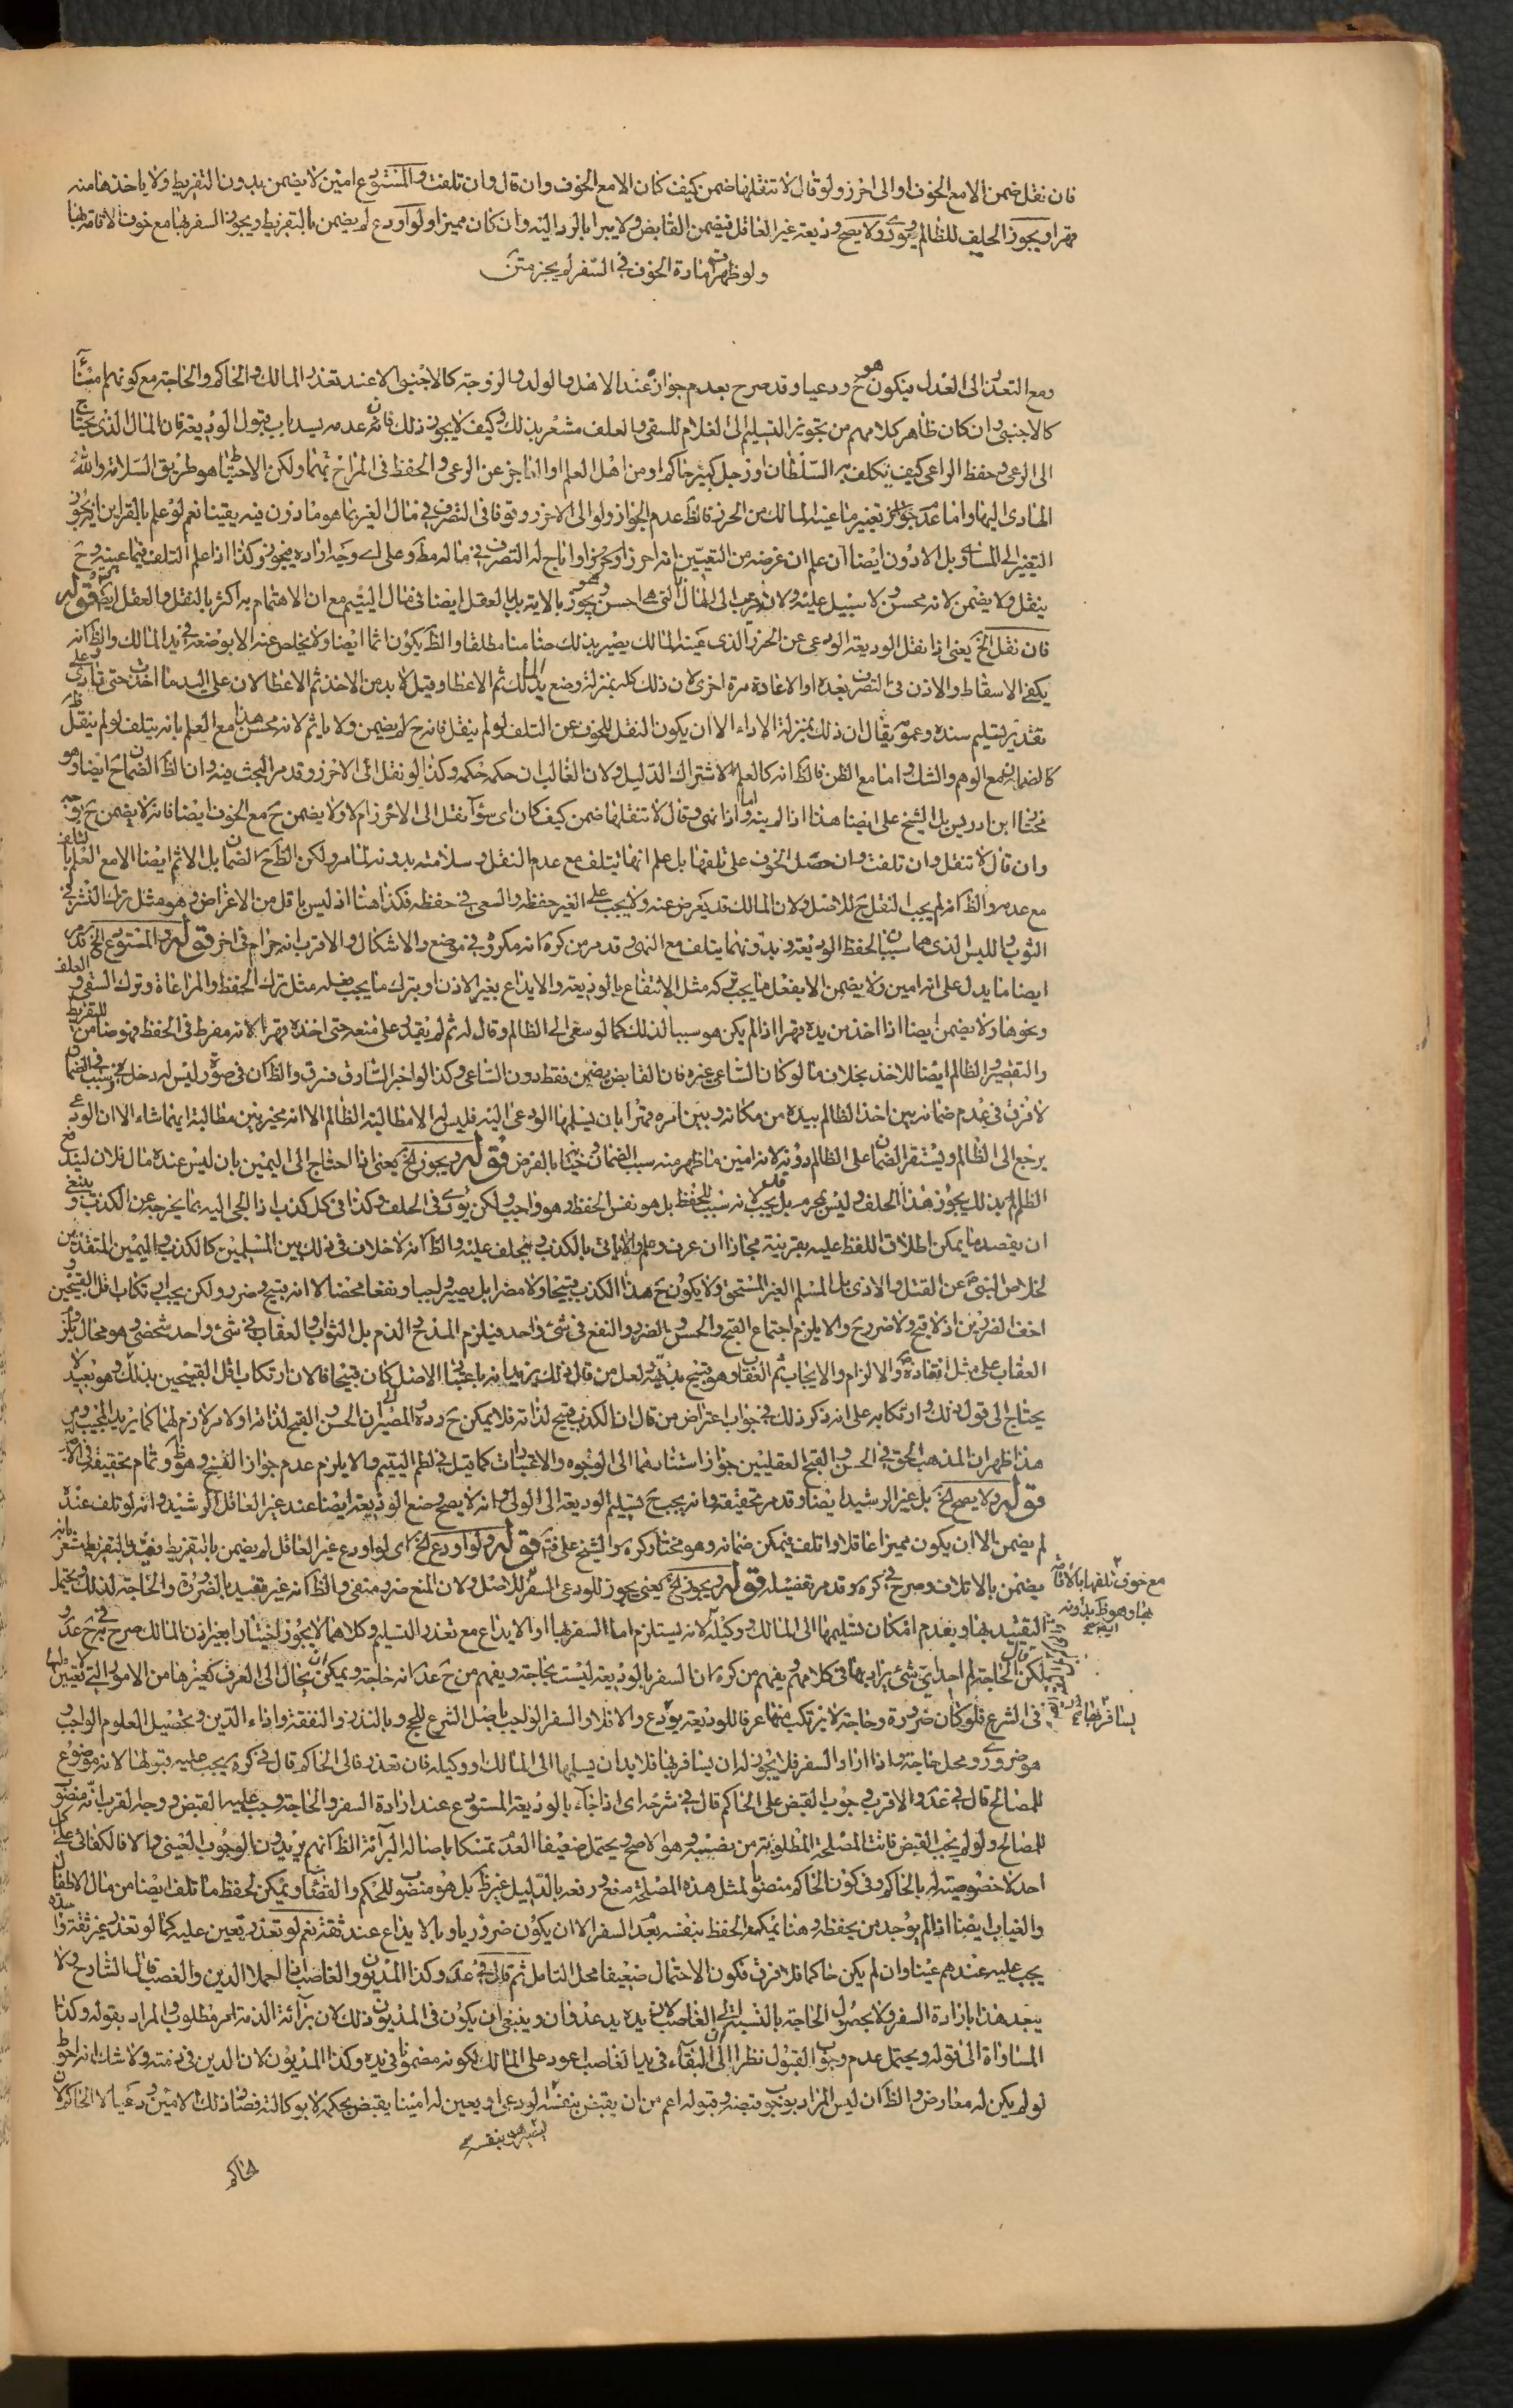 فان نقل ضمن الا مع الخوف او الى احرز ولو قال لا تنقلها ضمن كيف كان الا مع الخوف وان قال وان تلفت والمستودع امين لا يضمن بدون التفريط ولا ياخذها منه
قهرا ويجوز الحلف للظالم ويورى ولا يصح وديعة غير العاقل فيضمن القابض ولا يبرا بالرد اليه وان كان مميزا ولو اودع لم يضمن بالتفريط ويجوز السفر بها مع خوف الاقامة بها
ولو ظهر امارة الخوف في السفر لم يجز متن
ومع التعذر الى العدل فيكون هو ح ودعيا وقد صرح بعدم جوازه عند الاهل والولد والزوجة كالاجنبى الا عند تعذر المالك والحاكم والحاجة مع كونهم
كالاجنبى وان كان ظاهر كلامهم من تجويز التسليم الى الغلام للسقى والعلف مشعر بذلك وكيف لا يجوز ذلك فان عدمه يسد باب قبول الوديعة فان المال الذى يحتاج
الى الرعى وحفظ الراعى كيف يتكلف به السلطان او رجل كبير حاكم او من اهل العلم او العاجز عن الرعى والحفظ فى المراح ولكن الاحتياط هو طريق السلامة والله
الهادى اليها واما عدم جواز تغيير ما عينه المالك من الحرز فالظ عدم الجواز ولو الى الاحرز وقوفا فى التصرف فى مال الغير بما هو ماذون فيه يقينا نعم لو علم بالقراين
التغير الى المساوى بل الادون ايضا ان علم ان غرضه من التعيين انه احرز او نحوه او اباح له التصرف فى ماله مط وعلى اى وجه اراده فيجوز وكذا اذا علم التلف فيما عينه وح
ينقل ولا يضمن لانه محسن ولا سبيل عليه ولان قرب الى المال التى هى احسن يجوز بالاية بل بالعقل ايضا فى مال اليتيم مع ان الاهتمام به اكثر بالنقل والعقل ايض قوله
فان نقل الخ يعنى اذا نقل الوديعة الودعى عن الحرز الذى عينه المالك يصير بذلك ضامنا مطلقا والظ يكون اثما ايضا ولا يخلص عنه الا بوضعه فى يد المالك والظ انه
يكفى الاسقاط والاذن فى التصرف بعده او الاعادة مرة اخرى لان ذلك كله بمنزلة وضع يد المالك ثم الاعطا وقيل لا بد من الاخذ ثم الاعطا لان على اليد ما اخذت حتى تؤدى
بعد تسليم سنده وعمومه يقال ان ذلك بمنزلة الاداء الا ان يكون النقل للخوف عن التلف لو لم ينقل فانه ح لا يضمن ولا ياثم لانه محسن هذا مع العلم بانه يتلف لو لم ينقل
كالضمان مع الوهم والشك واما مع الظن فالظ انه كالعلم لاشتراك الدليل ولان الغالب ان حكمه حكمه وكذا لو نقل الى الاحرز وقد مر البحث فيه وان الظ الضمان ح ايضا وهو
مختار ابن ادريس بل الشيخ على ايضا هذا اذا لم ينه واما اذا نهى وقال لا تنقلها ضمن كيف كان اى سواء نقل الى الاحرز ام لا ولا يضمن ح مع الخوف ايضا فانه لا يضمن ح
وان قال لا تنقل وان تلفت وان حصل الخوف على تلفها بل علم انها تتلف مع عدم النقل وسلامته بدونه لما مر ولكن الظ ح الضمان بل الاثم ايضا الا مع العلم بالتلف
مع عدمه والظ انه لم يجب النقل ح للاصل ولان المالك قد يعرض عنه ولا يجب على الغير حفظه والسعى فى حفظه فكذا هنا اذ ليس باقل من الاغراض وهو مثل ترك النشر فى
الثوب واللبس الذى هما سببا لحفظ الوديعة وبدونهما يتلف مع النهى وقد مر من كره انه مكروه فى موضع والاشكال والاقرب انه حرام فى اخر قوله والمستودع الخ قد مر
ايضا ما يدل على انه امين ولا يضمن الا بفعل ما يجب تركه مثل الانتفاع بالوديعة والايداع بغير الاذن او بترك ما يجب فعله مثل ترك الحفظ والمراعاة وترك السقى والعلف
ونحوها ولا يضمن ايضا اذا اخذ من يده قهرا اذا لم يكن هو سببا لذلك كما لو سعى الى الظالم وقال له ثم لم يقدر على منعه حتى اخذه قهرا لانه مفرط فى الحفظ فهو ضامن للتفريط
والتقصير والظالم ايضا للاخذ بخلاف ما لو كان الساعى غيره فان القابض يضمن فقط دون الساعى وكذا لو اخبر السارق فسرق والظ ان فى صورة ليس له دخل فى سبب الضمان
لا فرق فى عدم ضمانه بين اخذ الظالم بيده من مكانه وبين امره قهرا بان يسلمها الودعى اليه فليس له الا مطالبة الظالم الا انه مخير بين مطالبة ايهما شاء الا ان الودعى
يرجع الى الظالم ويستقر الضمان على الظالم دونه لانه امين ما ظهر منه سبب الضمان بالفرض قوله ويجوز الخ يعنى اذا احتاج الى اليمين بان ليس عنده مال فلان ليندفع
الظلم بذلك يجوز هذا الحلف وليس بمحرم بل يجب لانه سبب للحفظ بل هو نفس الحفظ وهو واجب لكن يورى فى الحلف وكذا فى كل كذب اذا الجى اليه بما يخرجه عن الكذب وينبغى
ان يقصد ما يمكن اطلاق اللفظ عليه بقرينة مجازا ان عرف وعلم والا ياتى بالكذب ويحلف عليه والظ انه لا خلاف فى ذلك بين المسلمين كالكذب واليمين
لخلاص النبى ص عن القتل والاذى بل المسلم الغير المستحق ولا يكون ح هذا الكذب قبيحا ولا مضرا بل يصير واجبا ونفعا محضا لا انه قبيح وضرر ولكن يجب ارتكاب اقل القبيحين
اخف الضررين اذ لا قبح ولا ضرر ح والا يلزم اجتماع القبح والحسن والضرر والنفع فى شئ واحد فيلزم المدح والذم بل الثواب والعقاب فى شئ واحد شخصى وهو محال
العقاب على مثل انقاذه ص والالزام والايجاب ثم العقاب وهو قبيح بديهة ولعل من قال ذلك يريد انه باعتبار الاصل كان قبيحا فالان ارتكاب اقل القبيحين بذلك وهو بعيد لا
يحتاج الى قول ذلك وارتكابه على انه ذكر ذلك فى جواب اعتراض من قال ان الكذب قبيح لذاته فلا يمكن ح وروده والمصير الى ان الحسن والقبح لذاته او لامر لازم لهما كما يريد المجيب ومن
هذا ظهر ان المذهب الحق فى الحسن والقبح العقليين جواز استنادهما الى الوجوه والاعتبارات كما قيل فى لطم اليتيم والا يلزم عدم جواز النسخ وهو ظ وتمام تحقيقه فى
قوله ولا يصح الخ بل غير الرشيد ايضا وقد مر تحقيقه وانه يجب ح تسليم الوديعة الى الولى وانه لا يصح وضع الوديعة ايضا عند غير العاقل الرشيد وانه لو تلف عنده
لم يضمن الا ان يكون مميزا عاقلا واتلف فيمكن ضمانه وهو مختار كره والشيخ على فيه قوله ولو اودع الخ اى لو اودع غير العاقل لم يضمن بالتفريط وقيد بالتفريط مشعر بانه
يضمن بالاتلاف وصرح فى كره وقد مر تفصيله قوله ويجوز الخ يعنى يجوز للودعى السفر للاصل ولان المنع ضرر ومنفى والظ انه غير مقيد بالضرورة والحاجة لذلك ويحتمل
التقييد بها وبعدم امكان تسليمها الى المالك ووكيله لانه يستلزم اما السفر بها او الايداع مع تعذر التسليم وكلاهما لا يجوز اختيارا بغير اذن المالك صرح فى شرح عد
لكن الحاجة لم اجد اى شئ يراد بها فى كلامهم ويفهم من كره ان السفر بالوديعة ليست بحاجة ويفهم من ح عد انه حاجة ويمكن ان يحال الى العرف كغيرها من الامور التى
فى الشرع فلو كان ضرورة وحاجة لا يرتكب منها عرفا للوديعة يودع والا فلا والسفر الواجب باصل الشرع للحج وبالنذر والنفقة واداء الدين وتحصيل العلوم الواجب
هو ضرورى ومحل حاجة واذا اراد السفر فلا يجوز له ان يسافر بها فلا بد ان يسلمها الى المالك او وكيله فان تعذر فالى الحاكم قال فى كره يجب عليه قبولها لانه موضوع
للمصالح قال فى عد والاقرب وجوب القبض على الحاكم قال فى شرحه اى اذا جاء بالوديعة المستودع عند ارادة السفر والحاجة وجب عليه القبض ووجه القرب انه منصوب
للمصالح ولو لم يجب القبض فاتت المصلحة المطلوبة من نصبه وهو الاصح ويحتمل ضعيفا العدم تمسكا باصالة البرائة الظ انهم يريدون الوجوب العينى والا فالكفائى على كل
احد لا خصوصية له بالحاكم وفى كون الحاكم منصوبا لمثل هذه المصلحة منع ودفعه بالدليل غير ظ بل هو منصوب للحكم والقضاء ويمكن لحفظ ما تلف ايضا من مال الاطفال
والغياب ايضا اذا لم يوجد من يحفظه وهنا يمكنه الحفظ بنفسه بعدم السفر الا ان يكون ضروريا وبالايداع عند ثقة نعم لو تعذر تعين عليه كما لو تعذر غير ثقة واحدة
يجب عليه عندهم عينا وان لم يكن حاكما فلا فرق فكون الاحتمال ضعيفا محل التامل ثم قال فى عد وكذا المديون والغاصب اذا حملا الدين والغصب قال الشارح ولا
يتقيد هذا بارادة السفر ولا بحصول الحاجة بالنسبة الى الغاصب لان يده يد عدوان وينبغى ان يكون فى المديون ذلك لان برائة الذمة امر مطلوب والمراد بقوله وكذا
المساواة الى قوله ويحتمل عدم وجوب القبول نظرا الى ان البقاء فى يد الغاصب اعود على المالك لكونه مضمونا فى يده وكذا المديون لان الدين فى ذمته ولا شك انه احوط
لو لم يكن له معارض والظ ان ليس المراد بوجوب قبضه وقبوله اعم من ان يقبض بنفسه الودعى او يعين له امينا يقبض بحكمه لا بوكالته فصار ذلك الامين ودعيا لا الحاكم
حاكم
مع خوف تلفها بالاقامة
بها وهو ظ بدونه